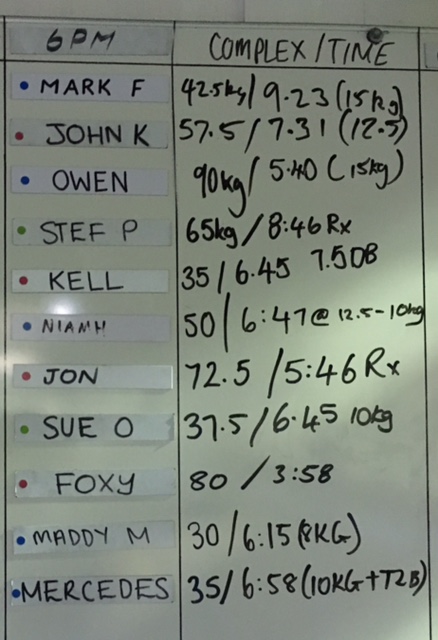 6PM COMPLEX/TIME
MARK F 42.5kg/ 9.23 (15kg)
JOHN K 57.5/ 7.31 (12.5)
OWEN 90kg/ 5.40 (15kg)
STEF P 65kg/8:46 Rx
KELL 35/6.45 7.5DB
NIAMH 50/6:47@ 12.5-10kg
JON 72.5 /5:46 Rx
SUE O 37.5/6.45 10kg
FOXY 80 /3:58
MADDY M 30/6:15(8KG)
MERCEDES 35/6:58(10KG+T2B)